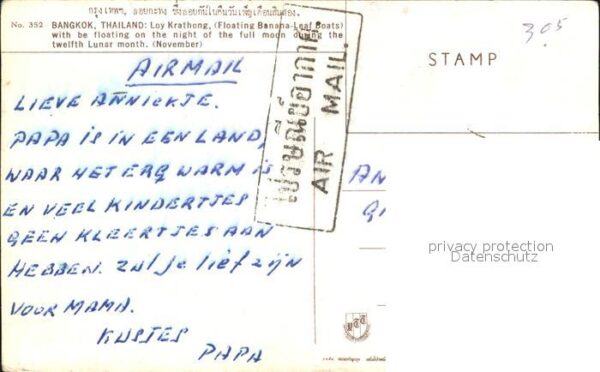 กรุงเทพฯ, ลอยกระทง
No. 352 BANGKOK, THAILAND: Loy Krathong, (Floating Banana-Leaf Boats)
with be floating on the night of the full moon during the
twelfth Lunar month. (November)
AIRMAIL
LIEVE ANNICKJE.
PAPA IS IN EEN LAND,
WAAR HET ERG WARM IS
EN VEEL KINDERTJES
GEEN KLEERTJES AAN
HEBBEN. Zul je lief zijn
VOOR MAMA.
KUSJES
PAPA
ไปรษณีย์อากาศ
AIR MAIL.
STAMP
305
AN
G
privacy protection
Datenschutz